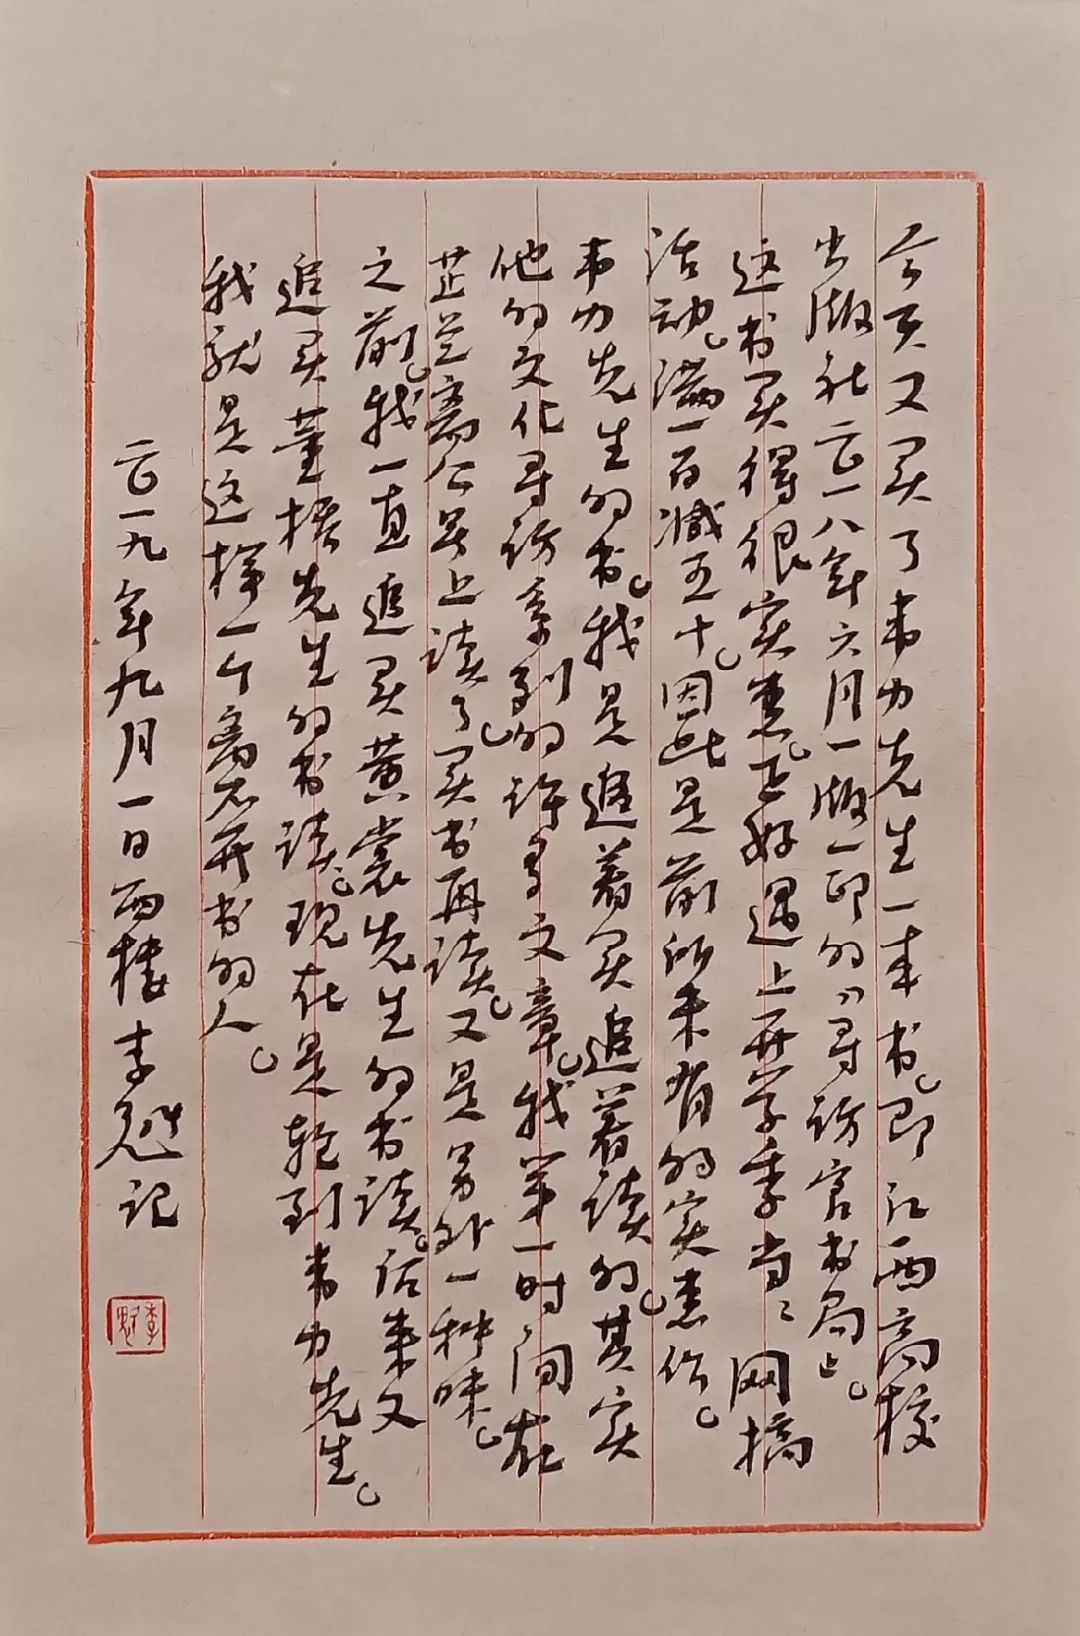 今天又买了韦力先生一本书。即江西高校
出版社二〇一八年六月一版一印的《寻访官书局》。
这书买得很实惠。正好遇上开学季当当网搞
活动。满一百减五十。因此是前所未有的实惠价。
韦力先生的书。我是追着买追着读的。其实
他的文化寻访系列的许多文章。我第一时间在
芷兰斋公号上读了。买书再读。又是另外一种味。
之前。我一直追买黄裳先生的书读。后来又
追买董桥先生的书读。现在是轮到韦力先生。
我就是这样一个离不开书的人。
二〇一九年九月一日西楼李魁记
李魁